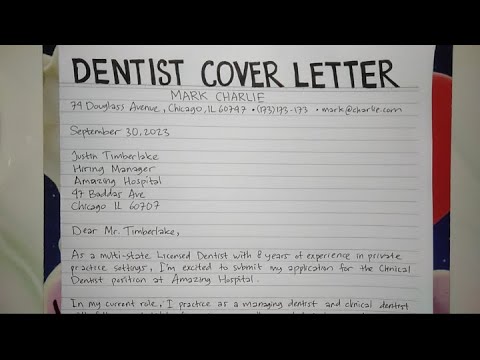 DENTIST COVER LETTER
MARK CHARLIE
74 Douglass Avenue, Chicago, IL 60747 • (173)173-173 • mark@charlie.com
September 30, 2023
Justin Timberlake
Hiring Manager
Amazing Hospital
47 Baddas Ave
Chicago IL 60707
Dear Mr. Timberlake,
As a multi-state Licensed Dentist with 8 years of experience in private
practice settings, I'm excited to submit my application for the Clinical
Dentist position at Amazing Hospital.
In my current role, I practice as a managing dentist and clinical dentist